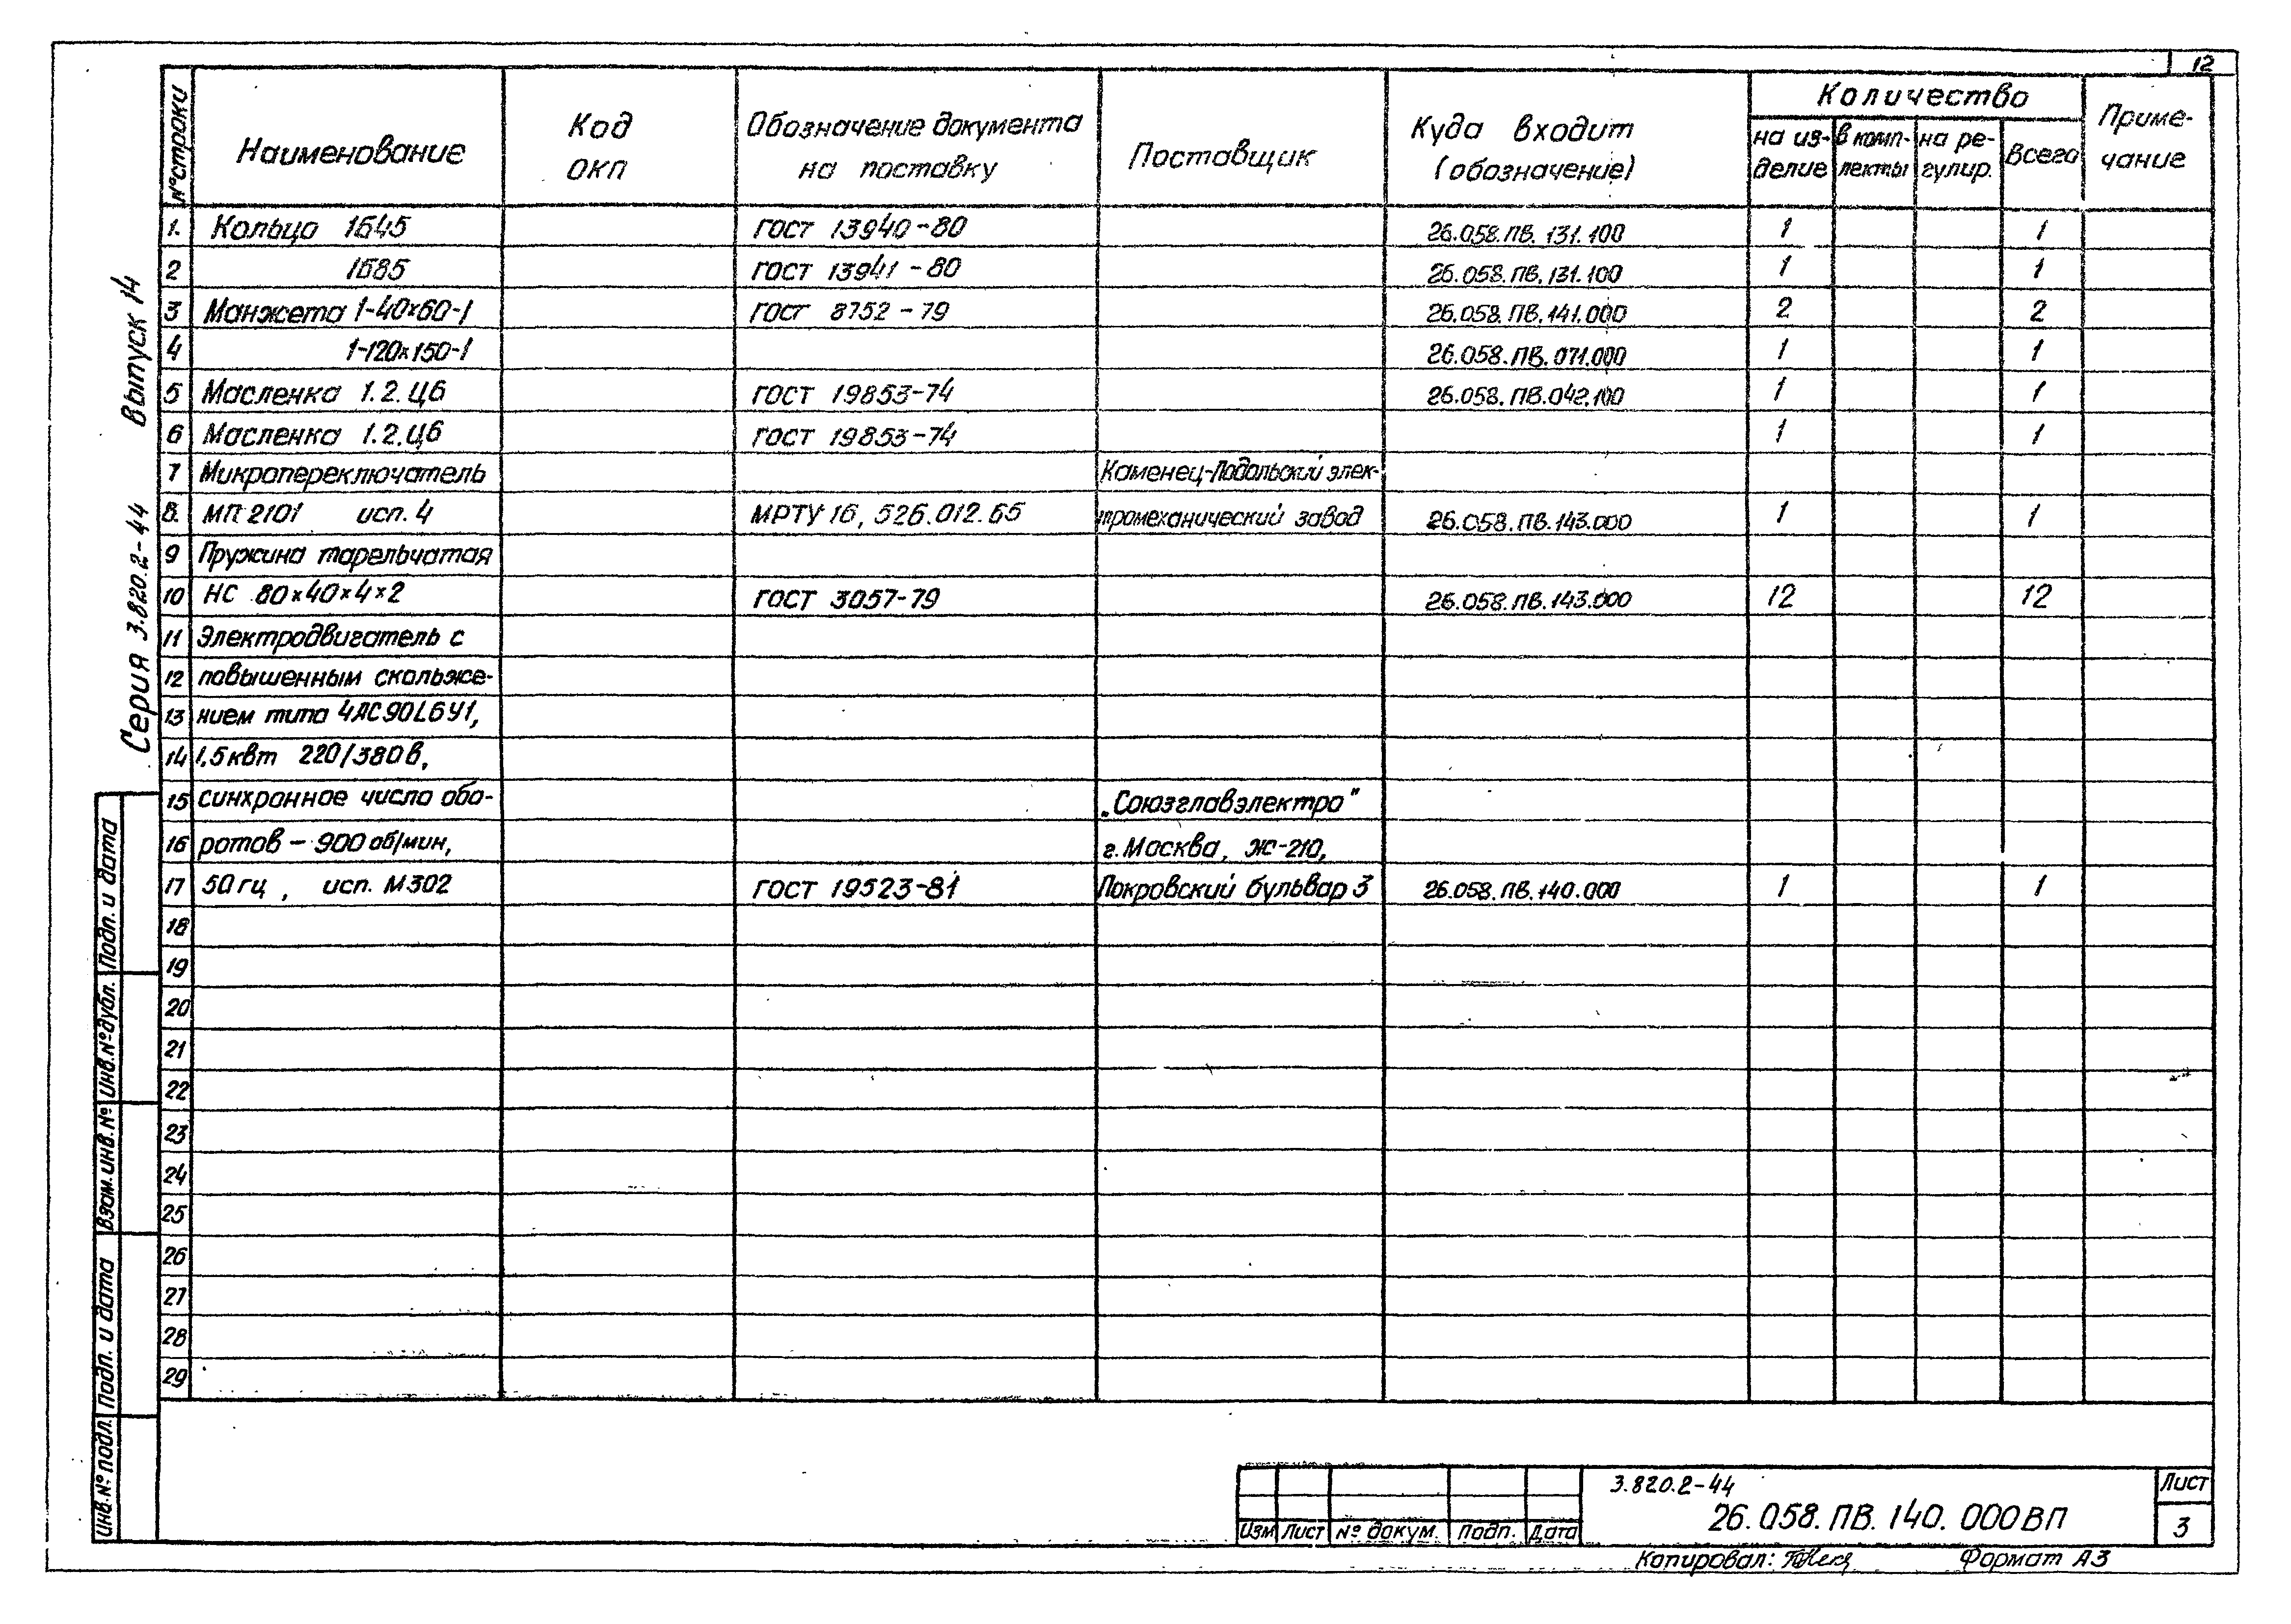 12
№ строки Наименование Код ОКП Обозначение документа на поставку Поставщик Куда входит (обозначение) Количество на из-делие в комп-лекты на ре-гулир. Всего Приме-чание
1. Кольцо 1Б45 ГОСТ 13940-80 26.058.ПВ.131.100 1 1
2 1Б85 ГОСТ 13941-80 26.058.ПВ.131.100 1 1
3 Манжета 1-40×60-1 ГОСТ 8752-79 26.058.ПВ.141.000 2 2
4 1-120×150-1 26.058.ПВ.071.000 1 1
5 Масленка 1.2.Ц6 ГОСТ 19853-74 26.058.ПВ.042.100 1 1
6 Масленка 1.2.Ц6 ГОСТ 19853-74 1 1
7 Микропереключатель Каменец-Подольский элек-
8. МП 2101 исп. 4 МРТУ 16, 526.012.65 тромеханический завод 26.058.ПВ.143.000 1 1
9 Пружина тарельчатая
10 НС 80×40×4×2 ГОСТ 3057-79 26.058.ПВ.143.000 12 12
11 Электродвигатель с
12 повышенным скольже-
13 нием типа 4АС90L6У1,
14 1,5квт 220/380в,
15 синхронное число обо- „Союзглавэлектро"
16 ротов - 900 об/мин, г. Москва, Ж-210,
17 50гц, исп. М302 ГОСТ 19523-81 Покровский бульвар 3 26.058.ПВ.140.000 1 1
18
19
20
21
22
23
24
25
26
27
28
29
Серия 3.820.2-44 Выпуск 14
Инв.№ подл. Подп. и дата Взам.инв.№ Инв.№дубл. Подп. и дата
Изм Лист № докум. Подп. Дата
3.820.2-44
26.058.ПВ.140.000ВП
Лист
3
Копировал: Формат А3